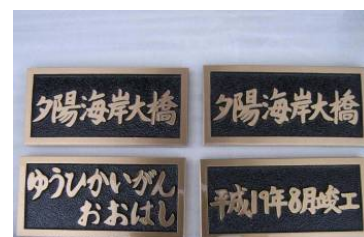 夕陽海岸大橋
夕陽海岸大橋
ゆうひかいがん
おおはし
平成19年8月竣工